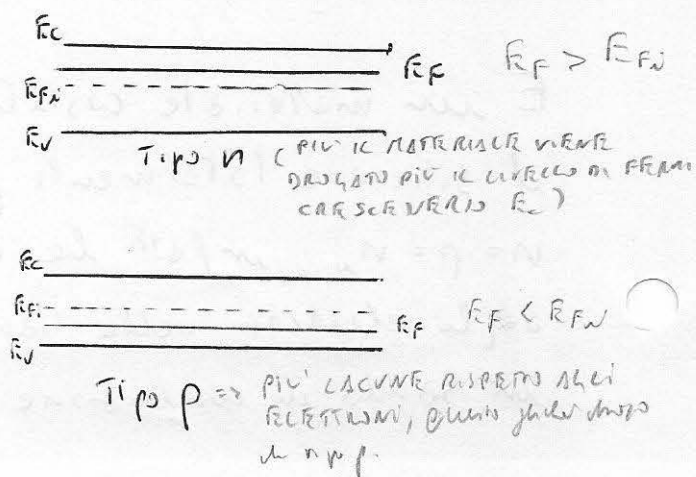 Ec
EF EF > EFi
EFi
Ev
Tipo n (PIÙ IL MATERIALE VIENE
DROGATO PIÙ IL LIVELLO DI FERMI
CRESCE VERSO Ec)
Ec
EFi EF EF < EFi
Ev
Tipo p => PIÙ LACUNE RISPETTO AGLI
ELETTRONI, questo
di tipo p.